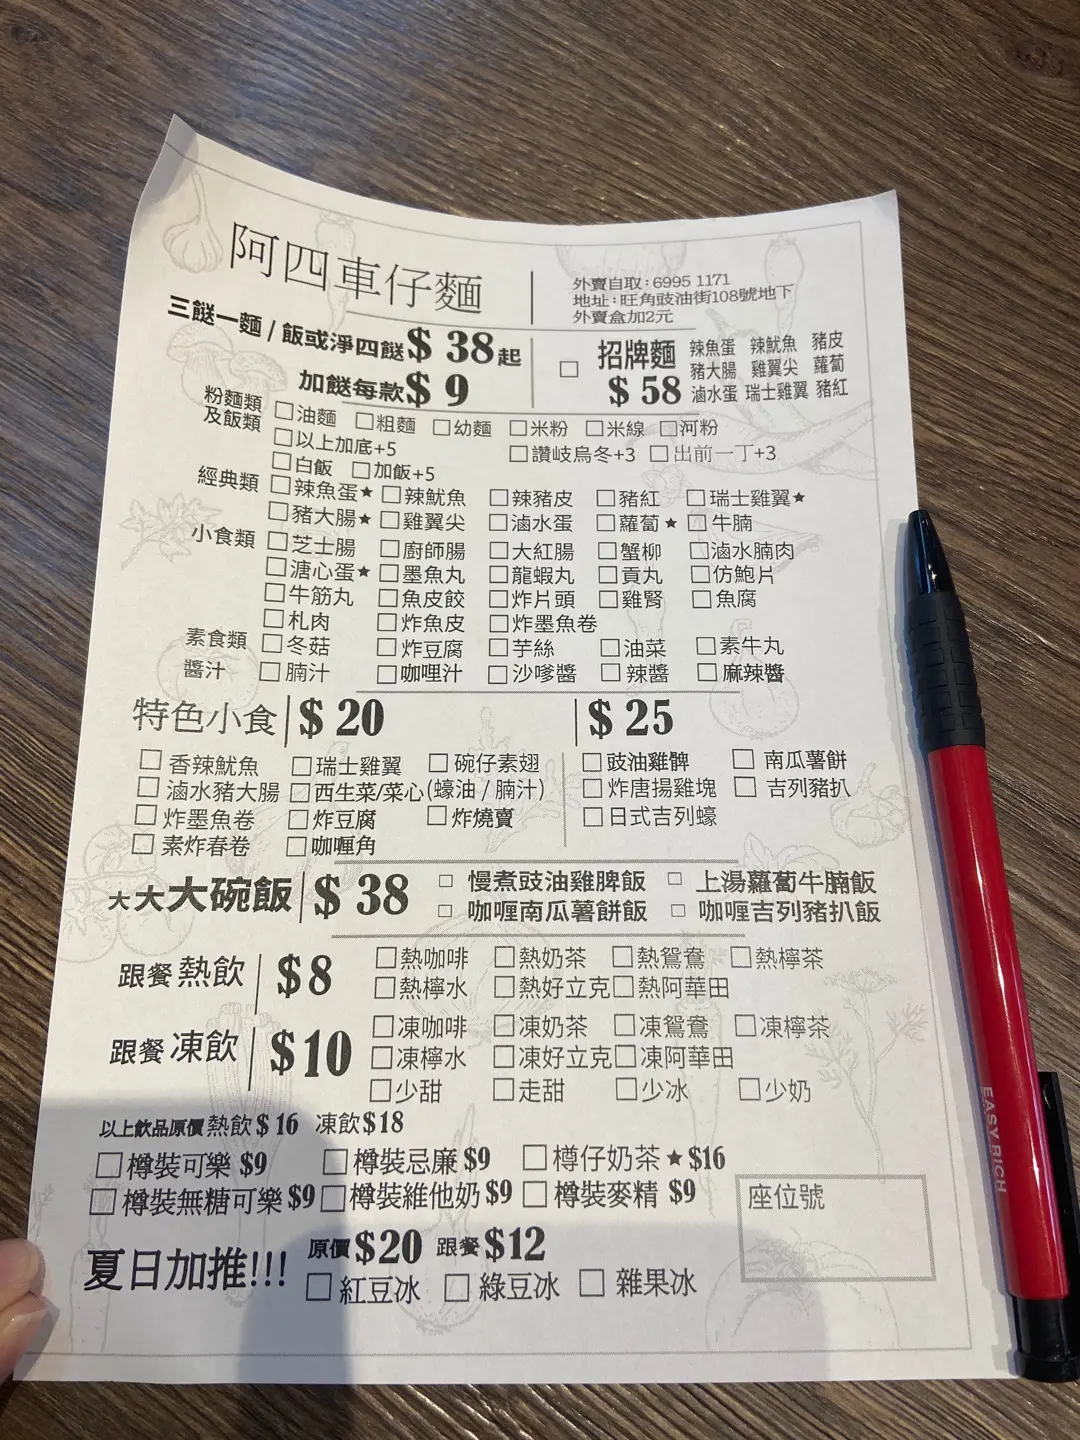 阿四車仔麵
外賣自取：6995 1171
地址：旺角豉油街108號地下
外賣盒加2元
三餸一麵 / 飯或淨四餸 $ 38起
加餸每款 $ 9
□ 招牌麵 $ 58
辣魚蛋 辣魷魚 豬皮
豬大腸 雞翼尖 蘿蔔
滷水蛋 瑞士雞翼 豬紅
粉麵類及飯類 □油麵 □粗麵 □幼麵 □米粉 □米線 □河粉
□以上加底+5 □讚岐烏冬+3 □出前一丁+3
□白飯 □加飯+5
經典類 □辣魚蛋★ □辣魷魚 □辣豬皮 □豬紅 □瑞士雞翼★
□豬大腸★ □雞翼尖 □滷水蛋 □蘿蔔★ □牛腩
小食類 □芝士腸 □廚師腸 □大紅腸 □蟹柳 □滷水腩肉
□溏心蛋★ □墨魚丸 □龍蝦丸 □貢丸 □仿鮑片
□牛筋丸 □魚皮餃 □炸片頭 □雞腎 □魚腐
□札肉 □炸魚皮 □炸墨魚卷
素食類 □冬菇 □炸豆腐 □芋絲 □油菜 □素牛丸
醬汁 □腩汁 □咖哩汁 □沙嗲醬 □辣醬 □麻辣醬
特色小食 $ 20
□香辣魷魚 □瑞士雞翼 □碗仔素翅
□滷水豬大腸 □西生菜/菜心(蠔油 / 腩汁)
□炸墨魚卷 □炸豆腐 □炸燒賣
□素炸春卷 □咖喱角
$ 25
□豉油雞髀 □南瓜薯餅
□炸唐揚雞塊 □吉列豬扒
□日式吉列蠔
大大大碗飯 $ 38
□慢煮豉油雞脾飯 □上湯蘿蔔牛腩飯
□咖喱南瓜薯餅飯 □咖喱吉列豬扒飯
跟餐 熱飲 $8
□熱咖啡 □熱奶茶 □熱鴛鴦 □熱檸茶
□熱檸水 □熱好立克 □熱阿華田
跟餐 凍飲 $10
□凍咖啡 □凍奶茶 □凍鴛鴦 □凍檸茶
□凍檸水 □凍好立克 □凍阿華田
□少甜 □走甜 □少冰 □少奶
以上飲品原價 熱飲 $ 16 凍飲 $18
□樽裝可樂 $9 □樽裝忌廉 $9 □樽仔奶茶★ $16
□樽裝無糖可樂 $9 □樽裝維他奶 $9 □樽裝麥精 $9
座位號
夏日加推!!! 原價 $20 跟餐 $12
□紅豆冰 □綠豆冰 □雜果冰
EASYRICH